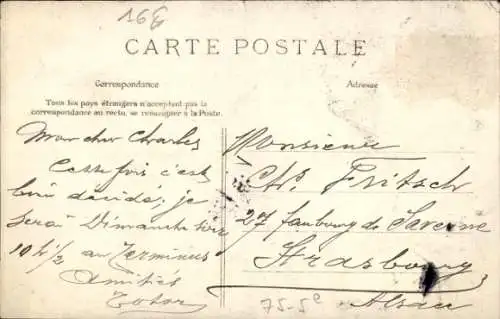 16E
CARTE POSTALE
Correspondance
Adresse
Tous les pays étrangers n'acceptent pas la
correspondance au recto, se renseigner à la Poste.
Mon cher Charles
Cette fois c'est
bien décidé; je
serai Dimanche
10 h 1/2 au Terminus
Amitiés
Totor
Monsieur
Ch. Fritsch
27 faubourg de Saverne
Strasbourg
Alsace
75-5e